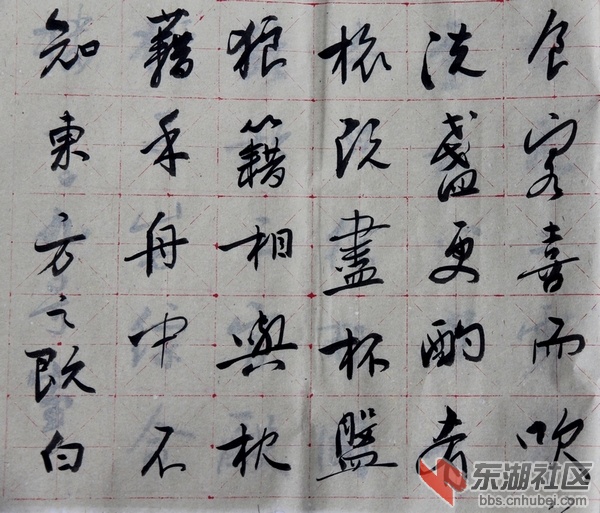 食客喜而咲
洗盞更酌肴
核既盡杯盤
狼籍相與枕
藉乎舟中不
知東方之既白
东湖社区
bbs.cnhubei.com